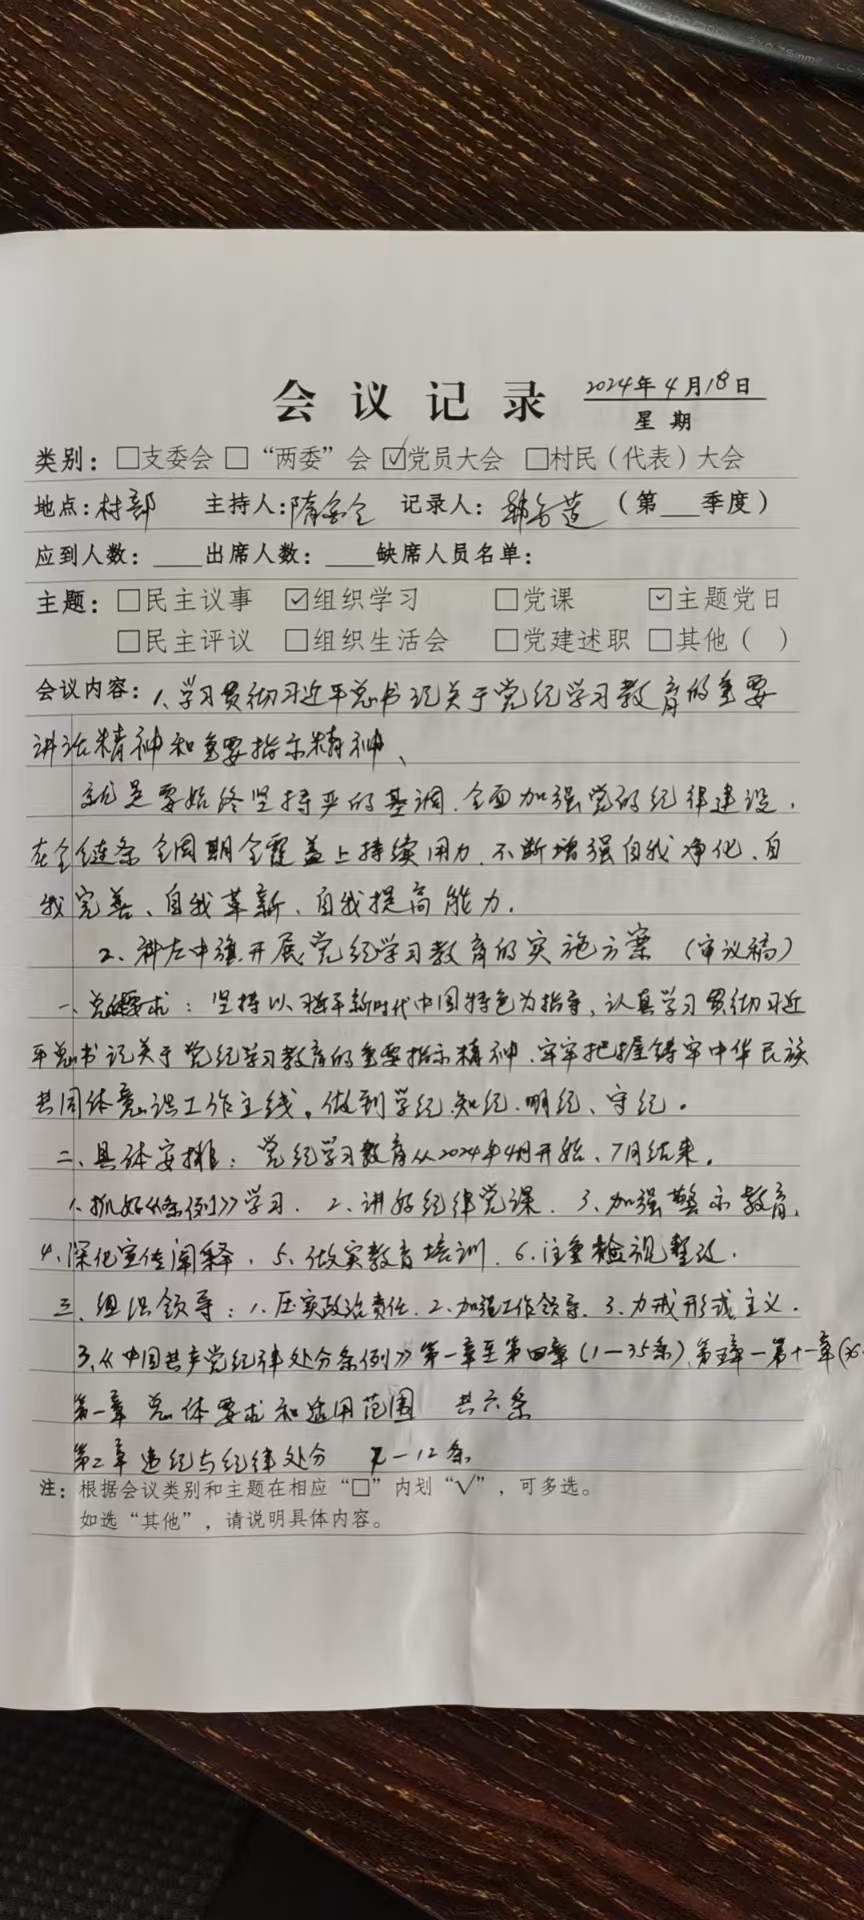 会议记录 2024年4月18日
星期
类别：□支委会 □“两委”会 ☑党员大会 □村民（代表）大会
地点：村部 主持人：隋 记录人： （第___季度）
应到人数：____出席人数：____缺席人员名单：
主题：□民主议事 ☑组织学习 □党课 ☑主题党日
□民主评议 □组织生活会 □党建述职 □其他（ ）
会议内容：1、学习贯彻习近平总书记关于党纪学习教育的重要
讲话精神和重要指示精神、
就是要始终坚持严的基调、全面加强党的纪律建设，
在全链条全周期全覆盖上持续用力、不断增强自我净化、自
我完善、自我革新、自我提高能力.
2、科左中旗开展党纪学习教育的实施方案（审议稿）
一、总体要求：坚持以习近平新时代中国特色为指导、认真学习贯彻习近
平总书记关于党纪学习教育的重要指示精神、牢牢把握铸牢中华民族
共同体意识工作主线。做到学纪、知纪、明纪、守纪。
二、具体安排：党纪学习教育从2024年4月开始、7月结束。
1、抓好《条例》学习. 2、讲好纪律党课. 3、加强警示教育、
4、深化宣传阐释、5、做实教育培训. 6、注重检视整改.
三、组织领导：1、压实政治责任. 2、加强工作领导. 3、力戒形式主义.
3、《中国共产党纪律处分条例》第一章至第四章（1—35条）、第五章—第十一章（36
第一章 总体要求和适用范围 共六条
第二章 违纪与纪律处分 7—12条
注：根据会议类别和主题在相应“□”内划“√”，可多选。
如选“其他”，请说明具体内容。